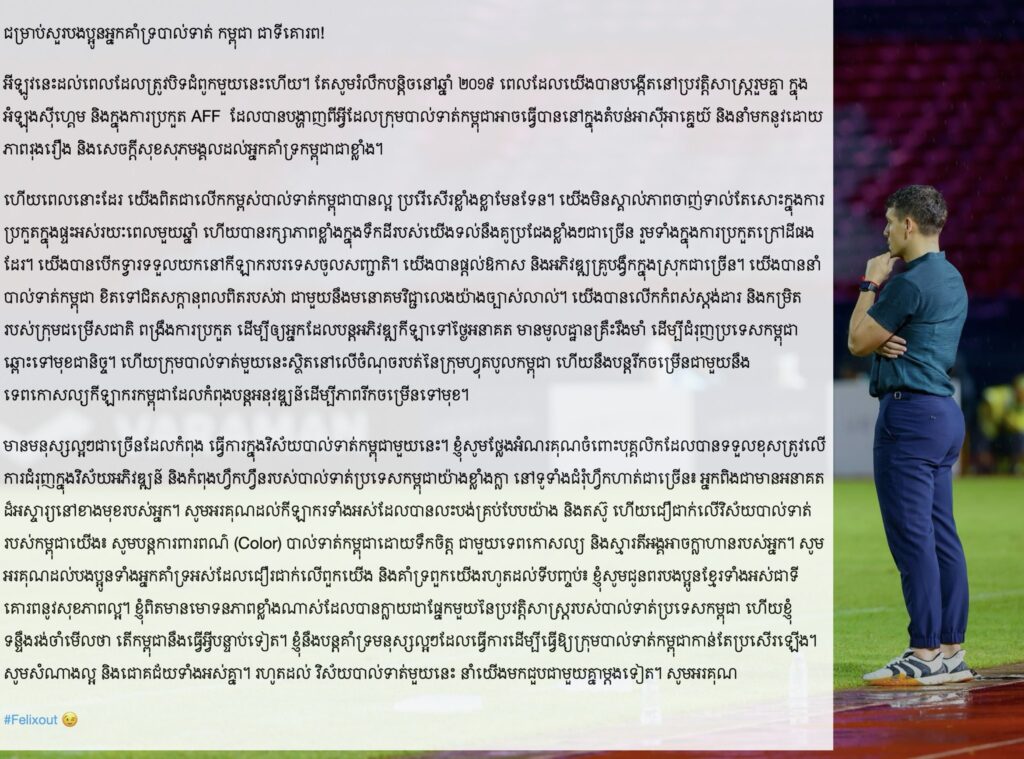 ជម្រាប់សួរបងប្អូនអ្នកគាំទ្របាល់ទាត់ កម្ពុជា ជាទីគោរព!
អីឡូវនេះដល់ពេលដែលត្រូវបិទជំពូកមួយនេះហើយ។ តែសូមរំលឹកបន្តិចនៅឆ្នាំ ២០១៩ ពេលដែលយើងបានបង្កើតនៅប្រវត្តិសាស្ត្ររួមគ្នា ក្នុង
អំឡុងស៊ីហ្គេម និងក្នុងការប្រកួត AFF ដែលបានបង្ហាញពីអ្វីដែលក្រុមបាល់ទាត់កម្ពុជាអាចធ្វើបាននៅក្នុងតំបន់អាស៊ីអាគ្នេយ៍ និងនាំមកនូវដោយ
ភាពរុងរឿង និងសេចក្តីសុខសុភមង្គលដល់អ្នកគាំទ្រកម្ពុជាជាខ្លាំង។
ហើយពេលនោះដែរ យើងពិតជាលើកកម្ពស់បាល់ទាត់កម្ពុជាបានល្អ ប្រពើរសើរខ្លាំងខ្លាមែនទែន។ យើងមិនស្គាល់ភាពចាញ់ទាល់តែសោះក្នុងការ
ប្រកួតក្នុងផ្ទះអស់រយះពេលមួយឆ្នាំ ហើយបានរក្សាភាពខ្លាំងក្នុងទឹកដីរបស់យើងទល់នឹងគូប្រជែងខ្លាំងៗជាច្រើន រួមទាំងក្នុងការប្រកួតក្រៅដីផង
ដែរ។ យើងបានបើកទ្វារទទួលយកនៅកីឡាករបរទេសចូលសញ្ជាតិ។ យើងបានផ្តល់ឱកាស និងអភិវឌ្ឍគ្រូបង្វឹកក្នុងស្រុកជាច្រើន។ យើងបាននាំ
បាល់ទាត់កម្ពុជា ខិតទៅជិតសក្តានុពលពិតរបស់វា ជាមួយនឹងមនោគមវិជ្ជាលេងយ៉ាងច្បាស់លាល់។ យើងបានលើកកំពស់ស្តង់ដារ និងកម្រិត
របស់ក្រុមជម្រើសជាតិ ពង្រឹងការប្រកួត ដើម្បីឲ្យអ្នកដែលបន្តអភិវឌ្ឍកីឡាទៅថ្ងៃអនាគត មានមូលដ្ឋានគ្រឹះរឹងមាំ ដើម្បីជំរុញប្រទេសកម្ពុជា
ឆ្ពោះទៅមុខជានិច្ច។ ហើយក្រុមបាល់ទាត់មួយនេះស្ថិតនៅលើចំណុចរបត់នៃក្រុមហ្វុតបូលកម្ពុជា ហើយនឹងបន្តរីកចម្រើនជាមួយនឹង
ទេពកោសល្យកីឡាករកម្ពុជាដែលកំពុងបន្តអនុវឌ្ឍន៍ដើម្បីភាពរីកចម្រើនទៅមុខ។
មានមនុស្សល្អៗជាច្រើនដែលកំពុង ធ្វើការក្នុងវិស័យបាល់ទាត់កម្ពុជាមួយនេះ។ ខ្ញុំសូមថ្លែងអំណរគុណចំពោះបុគ្គលិកដែលបានទទួលខុសត្រូវលើ
ការជំរុញក្នុងវិស័យអភិវឌ្ឍន៍ និងកំពុងហ្វឹកហ្វឺនរបស់បាល់ទាត់ប្រទេសកម្ពុជាយ៉ាងខ្លាំងក្លា នៅទូទាំងជំរុំហ្វឹកហាត់ជាច្រើន៖ អ្នកពិងជាមានអនាគត
ដ៏អស្ចារ្យនៅខាងមុខរបស់អ្នក។ សូមអរគុណដល់កីឡាករទាំងអស់ដែលបានលះបង់គ្រប់បែបយ៉ាង និងតស៊ូ ហើយជឿជាក់លើវិស័យបាល់ទាត់
របស់កម្ពុជាយើង៖ សូមបន្តការពារពណ៌ (Color) បាល់ទាត់កម្ពុជាដោយទឹកចិត្ត ជាមួយទេពកោសល្យ និងស្មារតីអង្គអាចក្លាហានរបស់អ្នក។ សូម
អរគុណដល់បងប្អូនទាំងអ្នកគាំទ្រអស់ដែលជឿរជាក់លើពួកយើង និងគាំទ្រពួកយើងរហូតដល់ទីបញ្ចប់៖ ខ្ញុំសូមជូនពរបងប្អូនខ្មែរទាំងអស់ជាទី
គោរពនូវសុខភាពល្អ។ ខ្ញុំពិតមានមោទនភាពខ្លាំងណាស់ដែលបានក្លាយជាផ្នែកមួយនៃប្រវត្តិសាស្ត្ររបស់បាល់ទាត់ប្រទេសកម្ពុជា ហើយខ្ញុំ
ទន្ទឹងរង់ចាំមើលថា តើកម្ពុជានឹងធ្វើអ្វីបន្ទាប់ទៀត។ ខ្ញុំនឹងបន្តគាំទ្រមនុស្សល្អៗដែលធ្វើការដើម្បីធ្វើឱ្យក្រុមបាល់ទាត់កម្ពុជាកាន់តែប្រសើរឡើង។
សូមសំណាងល្អ និងជោគជ័យទាំងអស់គ្នា។ រហូតដល់ វិស័យបាល់ទាត់មួយនេះ នាំយើងមកជួបជាមួយគ្នាម្តងទៀត។ សូមអរគុណ
#Felixout 😉